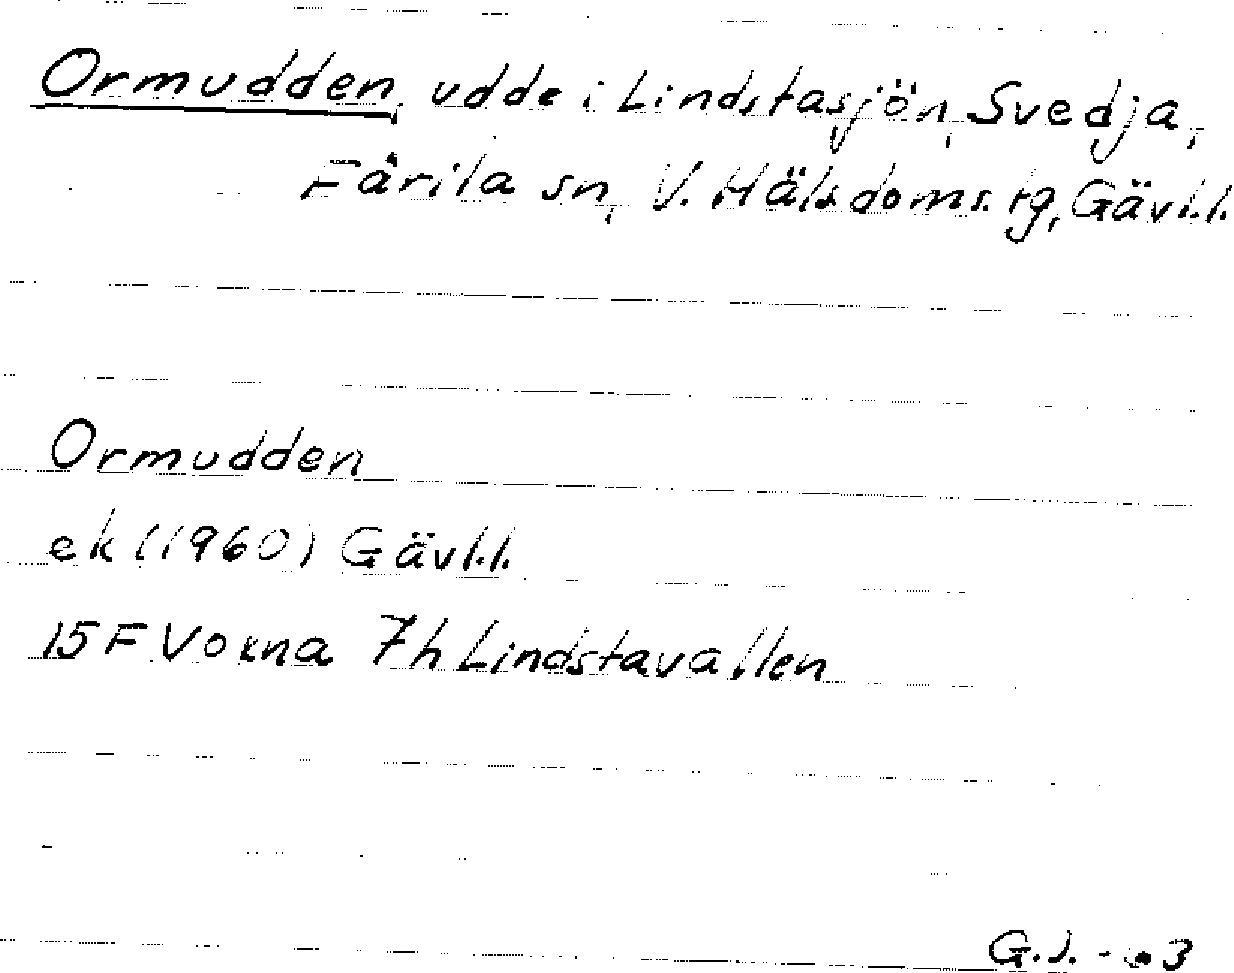 Ormudden, udde i Lindstasjön, Svedja,
Färila sn, V. Häls. doms. tg, Gävl.l.
Ormudden
ek (1960) Gävl.l.
15F Voxna 7h Lindstavallen
G.J.